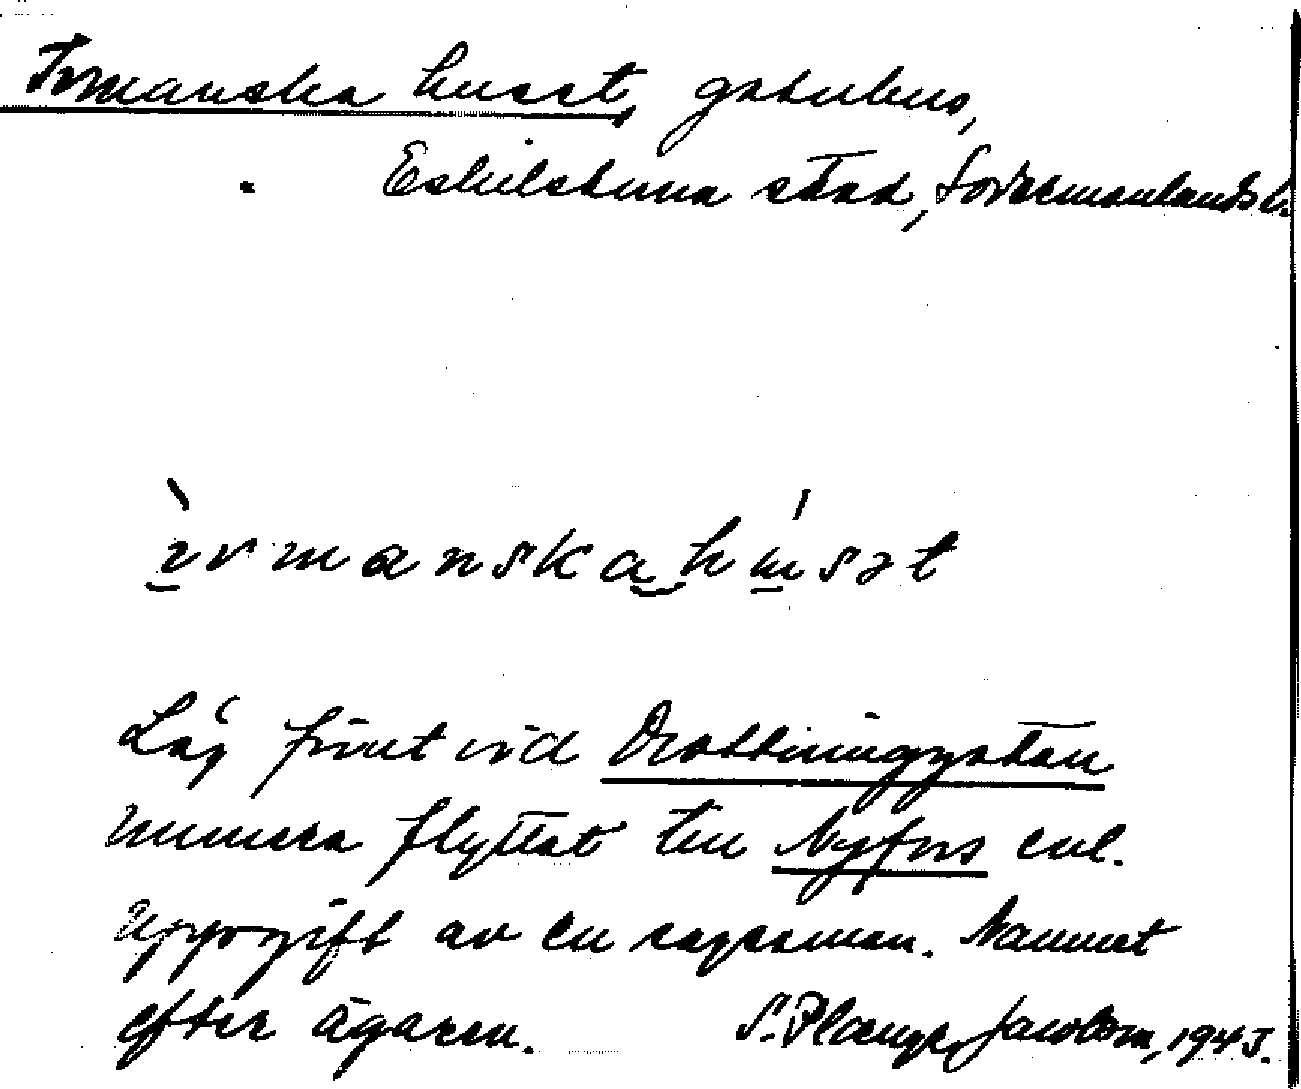 Ivrmanska huset, gatuhus,
Eskilstuna stad, Södermanlands l.
ìvrmanska húsət
Låg förut vid Drottninggatan
numera flyttat till Nyfors enl.
uppgift av en sagesman. Namnet
efter ägaren. S. Plænge Jacobson, 1945.